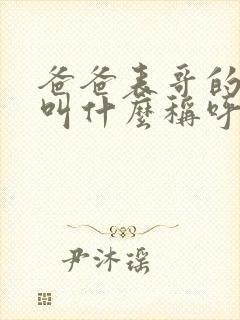 爸爸表哥的
叫什麼稱呼
尹沐瑶